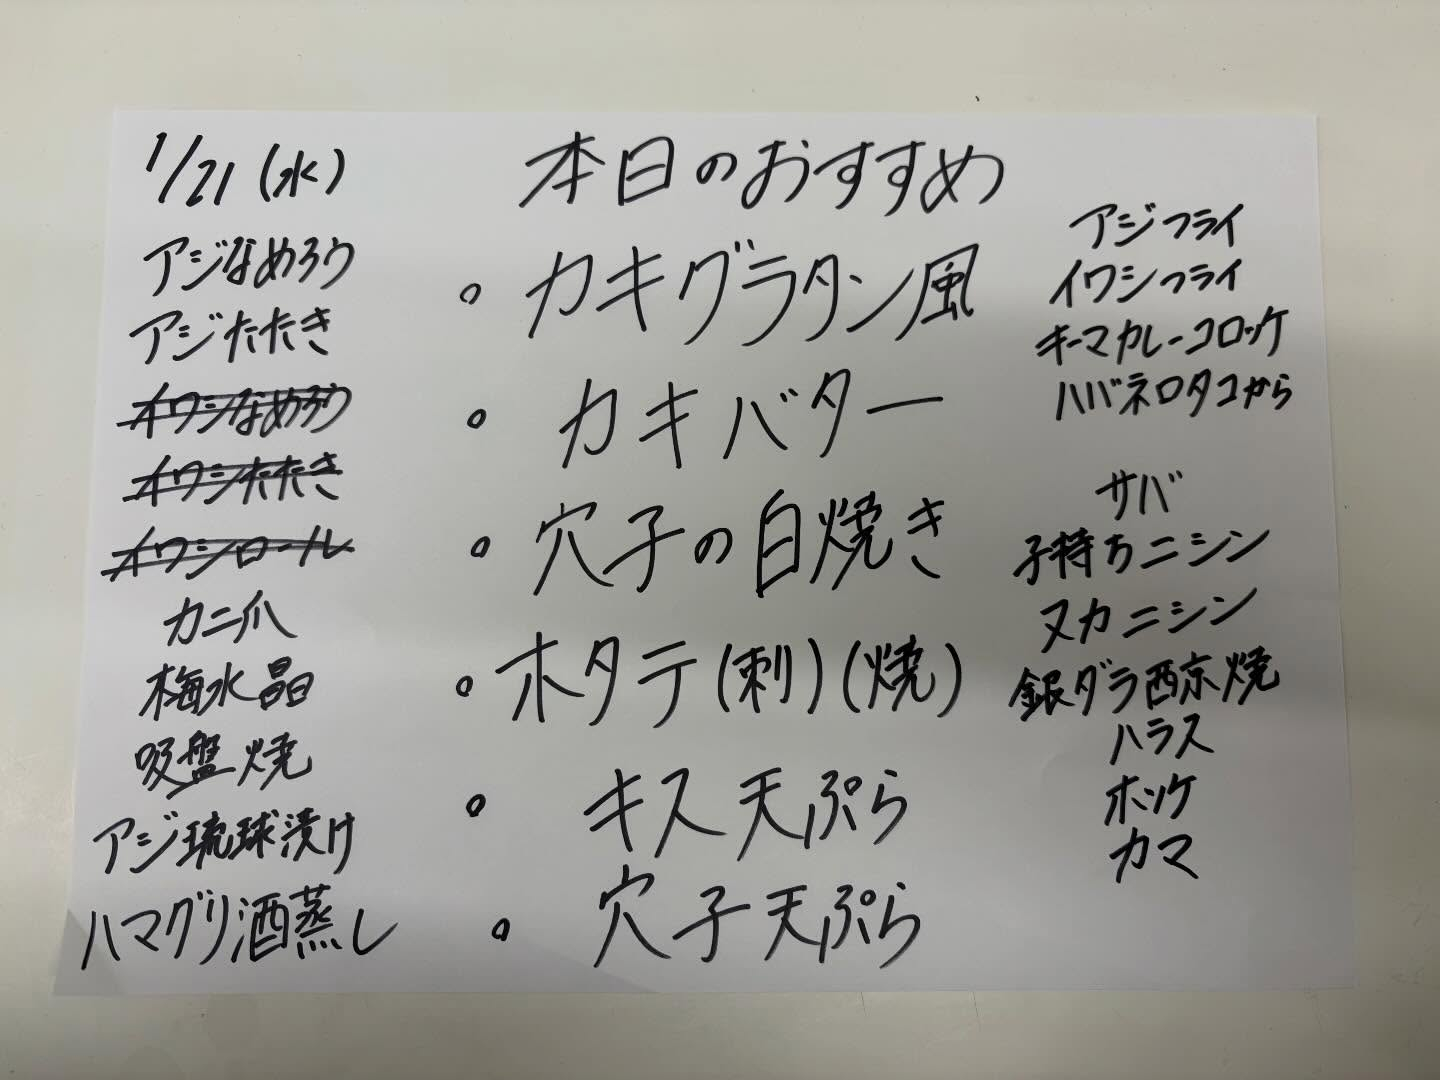 1/21(水)
アジなめろう
アジたたき
イワシなめろう
イワシたたき
イワシロール
カニ爪
梅水晶
吸盤焼
アジ琉球漬け
ハマグリ酒蒸し
本日のおすすめ
・カキグラタン風
・カキバター
・穴子の白焼き
・ホタテ(刺)(焼)
・キス天ぷら
・穴子天ぷら
アジフライ
イワシフライ
キーマカレーコロッケ
ハバネロタコから
サバ
子持ちニシン
ヌカニシン
銀ダラ西京焼
ハラス
ホッケ
カマ